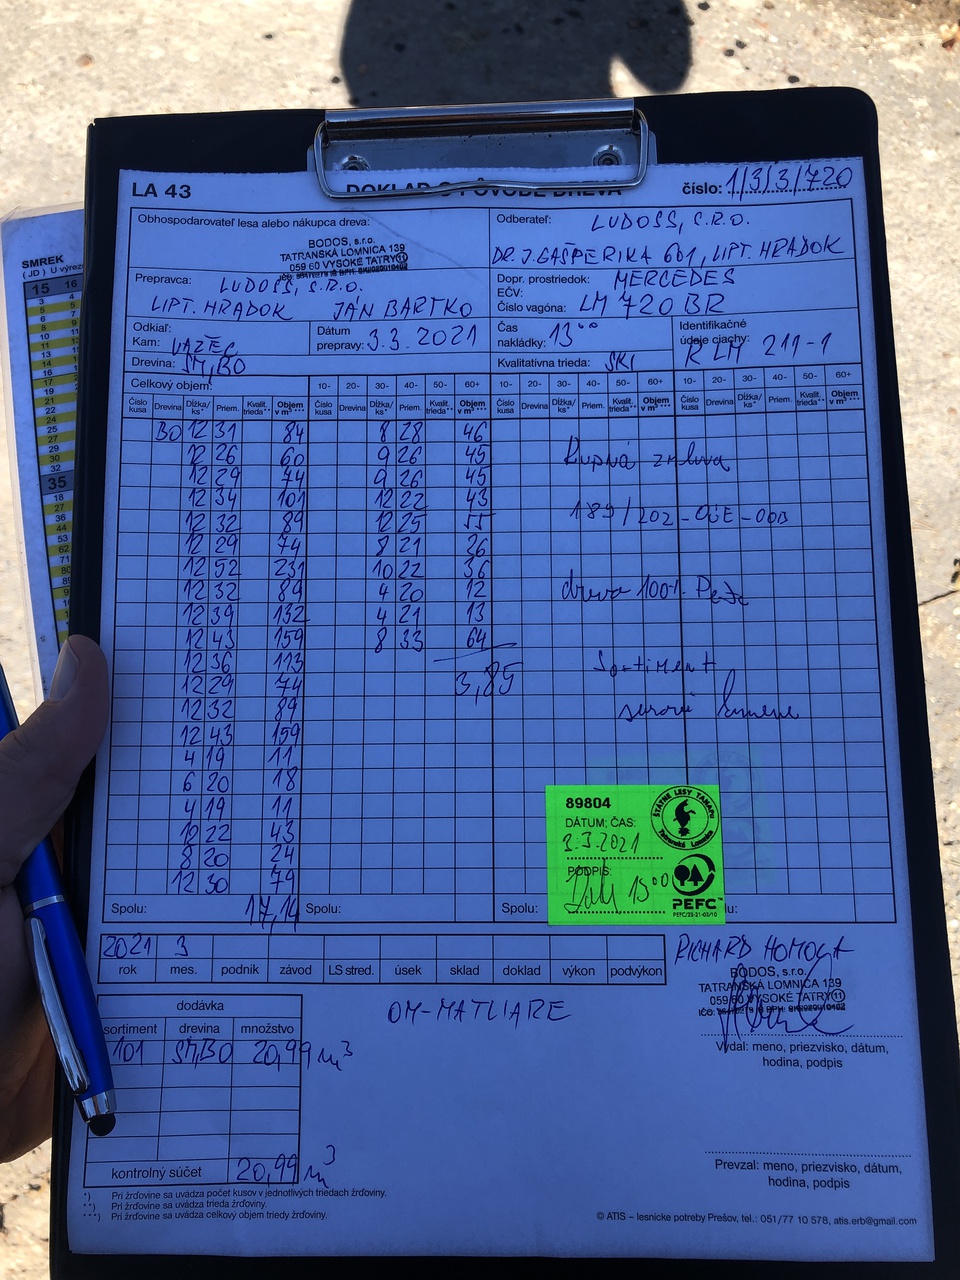 LA 43
DOKLAD O PÔVODE DREVA
číslo: 1/3/3/720
Obhospodarovateľ lesa alebo nákupca dreva:
BODOS, s.r.o.
TATRANSKÁ LOMNICA 139
059 60 VYSOKÉ TATRY 11
Odberateľ: LUDOSS, S.R.O.
DR. J. GAŠPERIKA 601, LIPT. HRADOK
Prepravca: LUDOSS, S.R.O.
LIPT. HRADOK JÁN BARTKO
Dopr. prostriedok: MERCEDES
EČV:
Číslo vagóna: LM 720 BR
Odkiaľ:
Kam: VAŽEC
Dátum prepravy: 3.3.2021
Čas nakládky: 13 00
Identifikačné údaje ciachy: R LM 211-1
Drevina: SM, BO
Kvalitatívna trieda: SKI
Celkový objem: 10- 20- 30- 40- 50- 60+ 10- 20- 30- 40- 50- 60+ 10- 20- 30- 40- 50- 60+
Číslo kusa Drevina Dĺžka/ks* Priem. Kvalit. trieda** Objem v m³ *** Číslo kusa Drevina Dĺžka/ks* Priem. Kvalit. trieda** Objem v m³ *** Číslo kusa Drevina Dĺžka/ks* Priem. Kvalit. trieda** Objem v m³ *** Číslo kusa Drevina Dĺžka/ks* Priem. Kvalit. trieda** Objem v m³ ***
BO 12 31 84 8 28 46
12 26 60 9 26 45
12 29 74 9 26 45
12 34 101 12 22 43
12 32 89 12 25 55
12 29 74 8 21 26
12 52 231 10 22 36
12 32 89 4 20 12
12 39 132 4 21 13
12 43 159 8 33 64
12 36 113
12 29 74 3,85
12 32 89
12 43 159
4 19 11
6 20 18
4 19 11
10 22 43
8 20 24
12 30 79
Kupná zmluva
dreva 100%
Sortiment
surové kmene
Spolu: 17,14 Spolu: Spolu:
89804
DÁTUM; ČAS:
3.3.2021
PODPIS:
15 00
ŠTÁTNE LESY TANAPu
Tatranská Lomnica
PEFC™
PEFC/23-21-03/10
2021 3
rok mes. podnik závod LS stred. úsek sklad doklad výkon podvýkon
RICHARD HOMOLA
BODOS, s.r.o.
TATRANSKÁ LOMNICA 139
059 60 VYSOKÉ TATRY 11
Vydal: meno, priezvisko, dátum,
hodina, podpis
OM-MATLIARE
dodávka
sortiment drevina množstvo
101 SM,BO 20,99 m³
kontrolný súčet 20,99 m³
Prevzal: meno, priezvisko, dátum,
hodina, podpis
*) Pri žrďovine sa uvádza počet kusov v jednotlivých triedach žrďoviny.
**) Pri žrďovine sa uvádza trieda žrďoviny.
***) Pri žrďovine sa uvádza celkový objem triedy žrďoviny.
© ATIS – lesnícke potreby Prešov, tel.: 051/77 10 578, atis.erb@gmail.com
SMREK
15 16
35